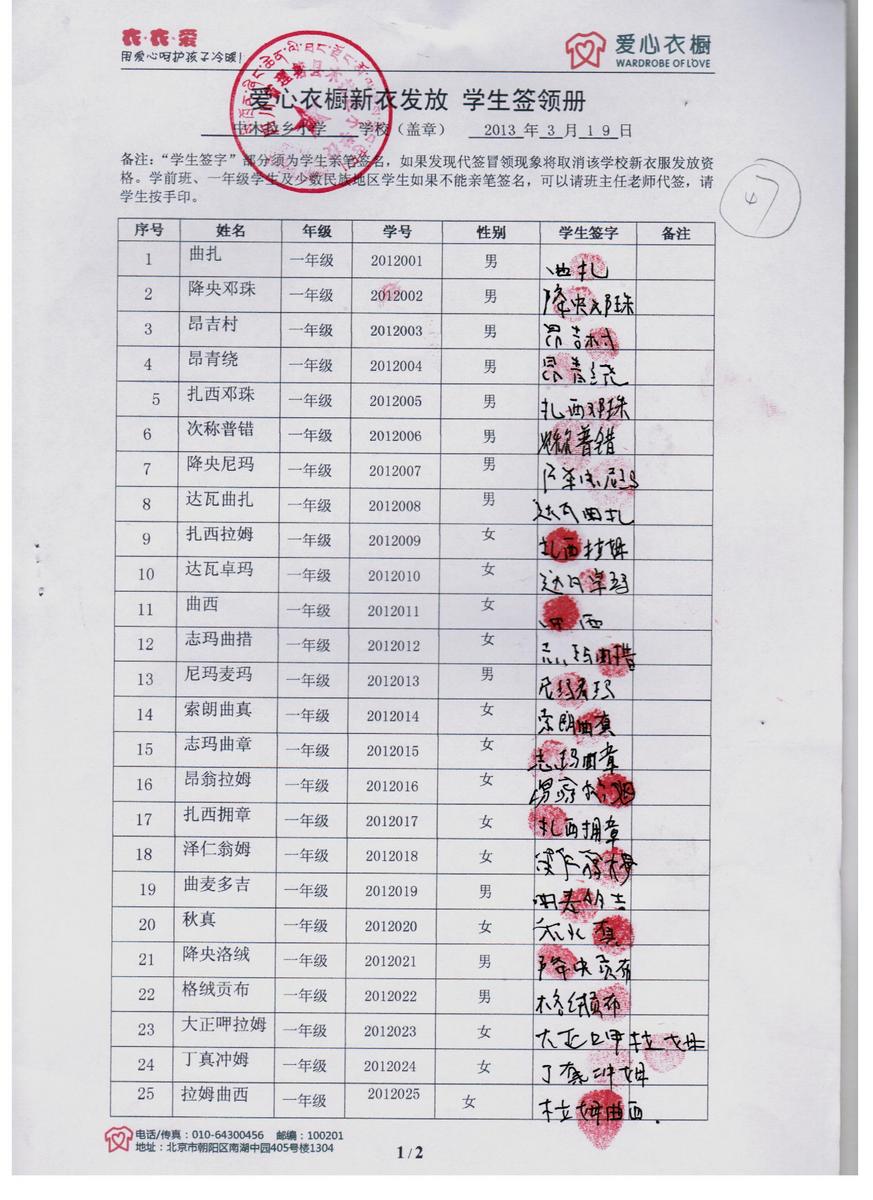 衣·衣·爱
用爱心呵护孩子冷暖!
爱心衣橱
WARDROBE OF LOVE
爱心衣橱新衣发放 学生签领册
中木拉乡小学 学校（盖章） 2013 年 3 月 19 日
备注：“学生签字”部分须为学生亲笔签名，如果发现代签冒领现象将取消该学校新衣服发放资
格。学前班、一年级学生及少数民族地区学生如果不能亲笔签名，可以请班主任老师代签，请
学生按手印。
47
序号 姓名 年级 学号 性别 学生签字 备注
1 曲扎 一年级 2012001 男 曲扎
2 降央邓珠 一年级 2012002 男 降央邓珠
3 昂吉村 一年级 2012003 男 昂吉村
4 昂青绕 一年级 2012004 男 昂青绕
5 扎西邓珠 一年级 2012005 男 扎西邓珠
6 次称普错 一年级 2012006 男 次称普错
7 降央尼玛 一年级 2012007 男
8 达瓦曲扎 一年级 2012008 男 达瓦曲扎
9 扎西拉姆 一年级 2012009 女 扎西拉姆
10 达瓦卓玛 一年级 2012010 女 达瓦卓玛
11 曲西 一年级 2012011 女 曲西
12 志玛曲措 一年级 2012012 女 志玛曲措
13 尼玛麦玛 一年级 2012013 男 尼玛麦玛
14 索朗曲真 一年级 2012014 女 索朗曲真
15 志玛曲章 一年级 2012015 女 志玛曲章
16 昂翁拉姆 一年级 2012016 女
17 扎西拥章 一年级 2012017 女 扎西拥章
18 泽仁翁姆 一年级 2012018 女
19 曲麦多吉 一年级 2012019 男 曲麦多吉
20 秋真 一年级 2012020 女 秋真
21 降央洛绒 一年级 2012021 男 降央贡布
22 格绒贡布 一年级 2012022 男 格绒贡布
23 大正呷拉姆 一年级 2012023 女 大正呷拉姆
24 丁真冲姆 一年级 2012024 女 丁真冲姆
25 拉姆曲西 一年级 2012025 女 拉姆曲西.
电话/传真：010-64300456 邮编：100201
地址：北京市朝阳区南湖中园405号楼1304
1 / 2